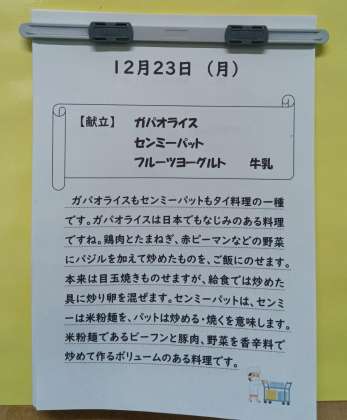 12月23日（月）
【献立】 ガパオライス
センミーパット
フルーツヨーグルト 牛乳
ガパオライスもセンミーパットもタイ料理の一種
です。ガパオライスは日本でもなじみのある料理
ですね。鶏肉とたまねぎ、赤ピーマンなどの野菜
にバジルを加えて炒めたものを、ご飯にのせます。
本来は目玉焼きものせますが、給食では炒めた
具に炒り卵を混ぜます。センミーパットは、センミ
ーは米粉麺を、パットは炒める・焼くを意味します。
米粉麺であるビーフンと豚肉、野菜を香辛料で
炒めて作るボリュームのある料理です。